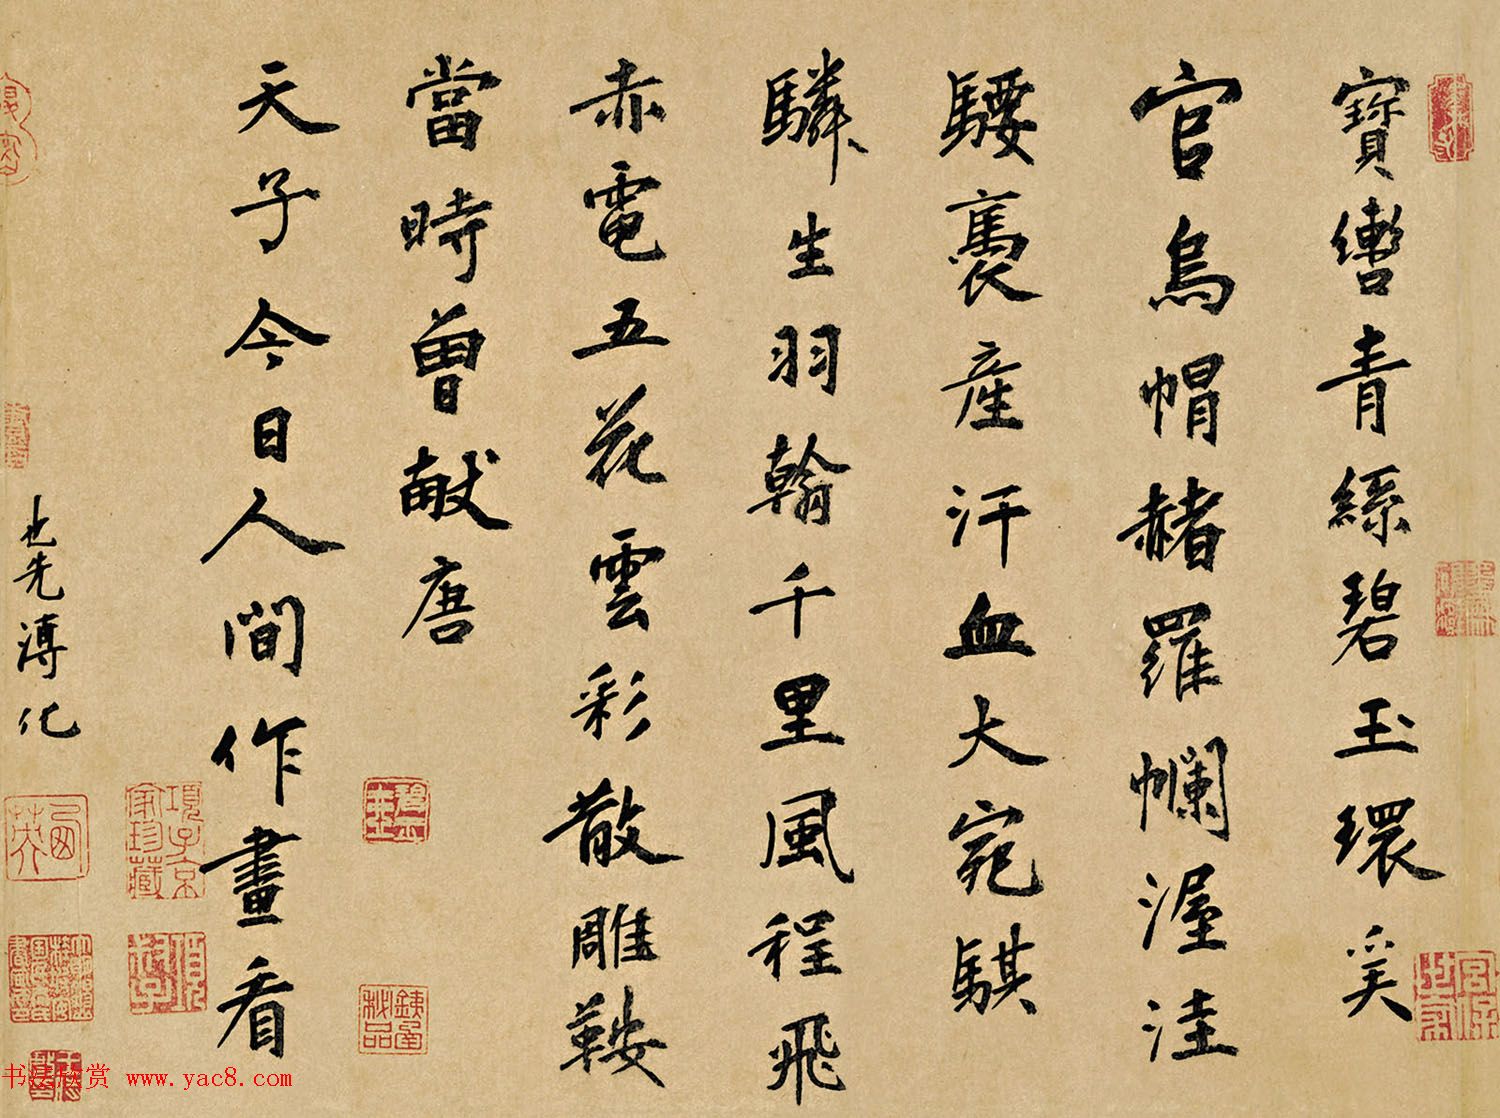 寶轡青絲碧玉環奚
官烏帽赭羅襴渥洼
騕褭産汗血大宛騏
驎生羽翰千里風程飛
赤電五花雲彩散雕鞍
當時曾獻唐
天子今日人間作畫看
也先溥化
項子京家珍藏
書法欣赏 www.yac8.com